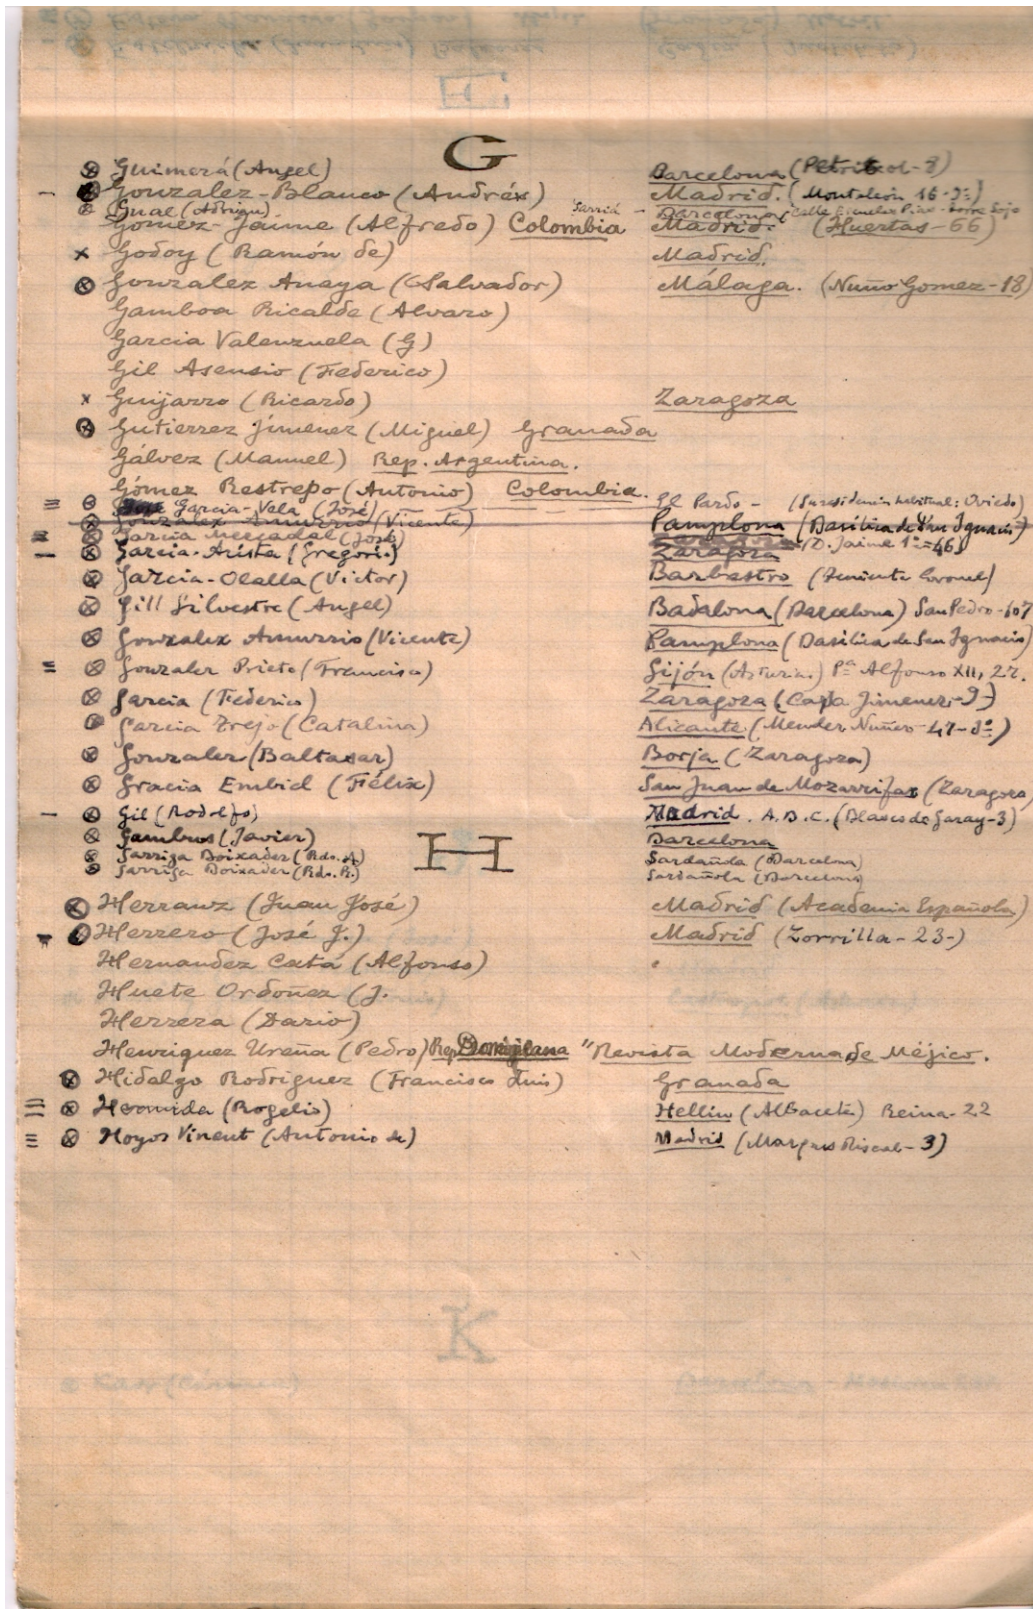 G
Guimerá (Angel) Barcelona (Petritxol-8)
Gonzalez-Blanco (Andrés) Madrid. (Monteleón 16-)
Gual (Adrián) Sarriá - Barcelona (Calle
Gomez-Jaime (Alfredo) Colombia Madrid. (Huertas-66)
x Godoy (Ramón de) Madrid.
Gonzalez Anaya (Salvador) Málaga. (Nuño Gomez-18)
Gamboa Ricalde (Alvaro)
Garcia Valenzuela (G)
Gil Asensio (Federico)
x Guijarro (Ricardo) Zaragoza
Gutierrez Jimenez (Miguel) Granada
Gálvez (Manuel) Rep. Argentina.
Gómez Restrepo (Antonio) Colombia.
Garcia-Vela (José) El Pardo - (Su residencia habitual: Oviedo)
Gonzalez Amurrio (Vicente) Pamplona (Basílica de San Ignacio)
Garcia Mercadal (José) (D. Jaime 1º-46)
Garcia-Arista (Gregorio) Zaragoza
Garcia-Olalla (Victor) Barbastro (Teniente Coronel)
Gill Silvestre (Angel) Badalona (Barcelona) San Pedro-107
Gonzalez Amurrio (Vicente) Pamplona (Basílica de San Ignacio)
Gonzalez Prieto (Francisco) Gijón (Asturias) Pª Alfonso XII, 22.
Garcia (Federico) Zaragoza (Jimenez-9-)
Garcia Trejo (Catalina) Alicante (Mendez Nuñez-47-3º)
Gonzalez (Baltasar) Borja (Zaragoza)
Gracia Embid (Félix) San Juan de Mozarrifar (Zaragoza)
- Gil (Rodolfo) Madrid. A.B.C. (Blasco de Garay-3)
Gambus (Javier) Barcelona
Garriga Boixader (Rdo. A.) Sardañola (Barcelona)
Garriga Boixader (Rdo. R.) Sardañola (Barcelona)
H
Herranz (Juan José) Madrid (Academia Española)
Herrero (José J.) Madrid (Zorrilla-23-)
Hernandez Catá (Alfonso)
Huete Ordoñez (J.
Herrera (Dario)
Henriquez Ureña (Pedro) Rep. Dominicana "Revista Moderna de Méjico.
Hidalgo Rodriguez (Francisco Luis) Granada
Hermida (Rogelio) Hellin (Albacete) Reina-22
Hoyos Vinent (Antonio de) Madrid (Marques Riscal-3)
K